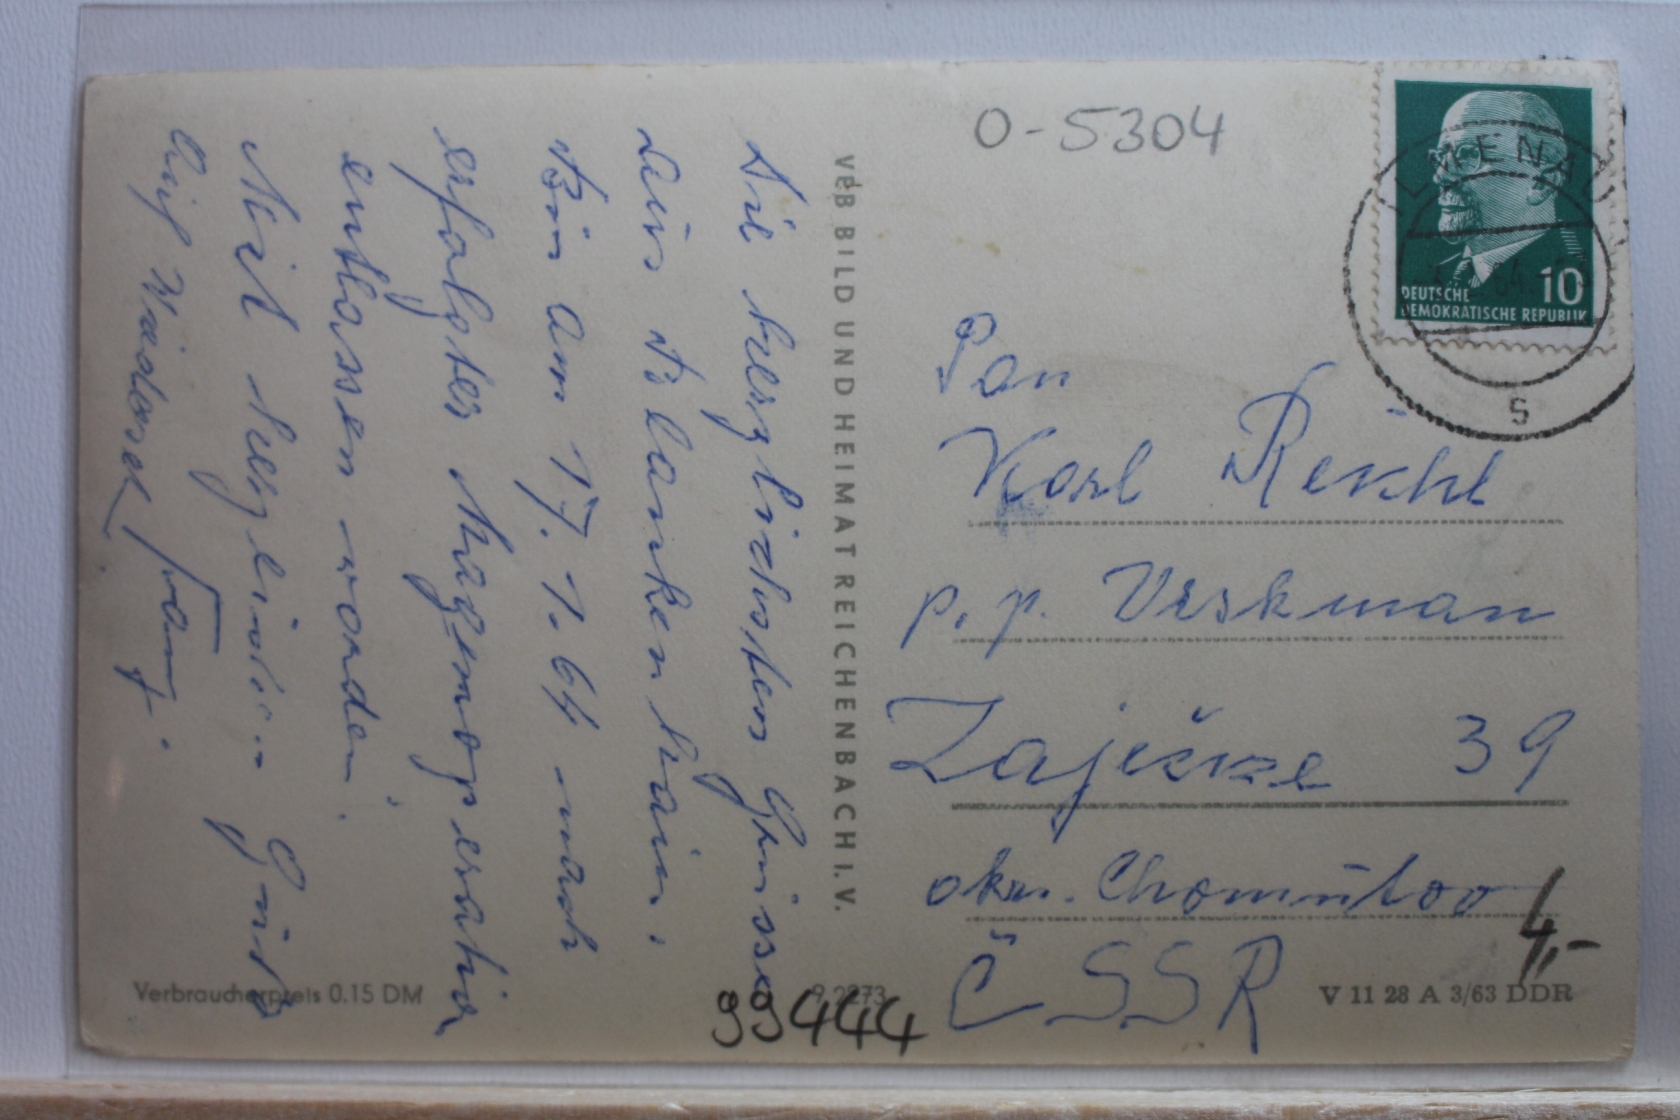 Die herzlichsten Grüsse
aus Blankenhain.
Bin am 17. 1. 64 nach
erfolgter Magenoperation
entlassen worden.
Mit herzlichen Gruß
Auf Wiedersehn Franz.
VEB BILD UND HEIMAT REICHENBACH I. V.
O-5304
DEUTSCHE
DEMOKRATISCHE REPUBLIK
10
s
Pan
Karl
p. p.
39
okr. Chomutov
ČSSR
4,-
Verbraucherpreis 0.15 DM
9 2273
99444
V 11 28 A 3/63 DDR